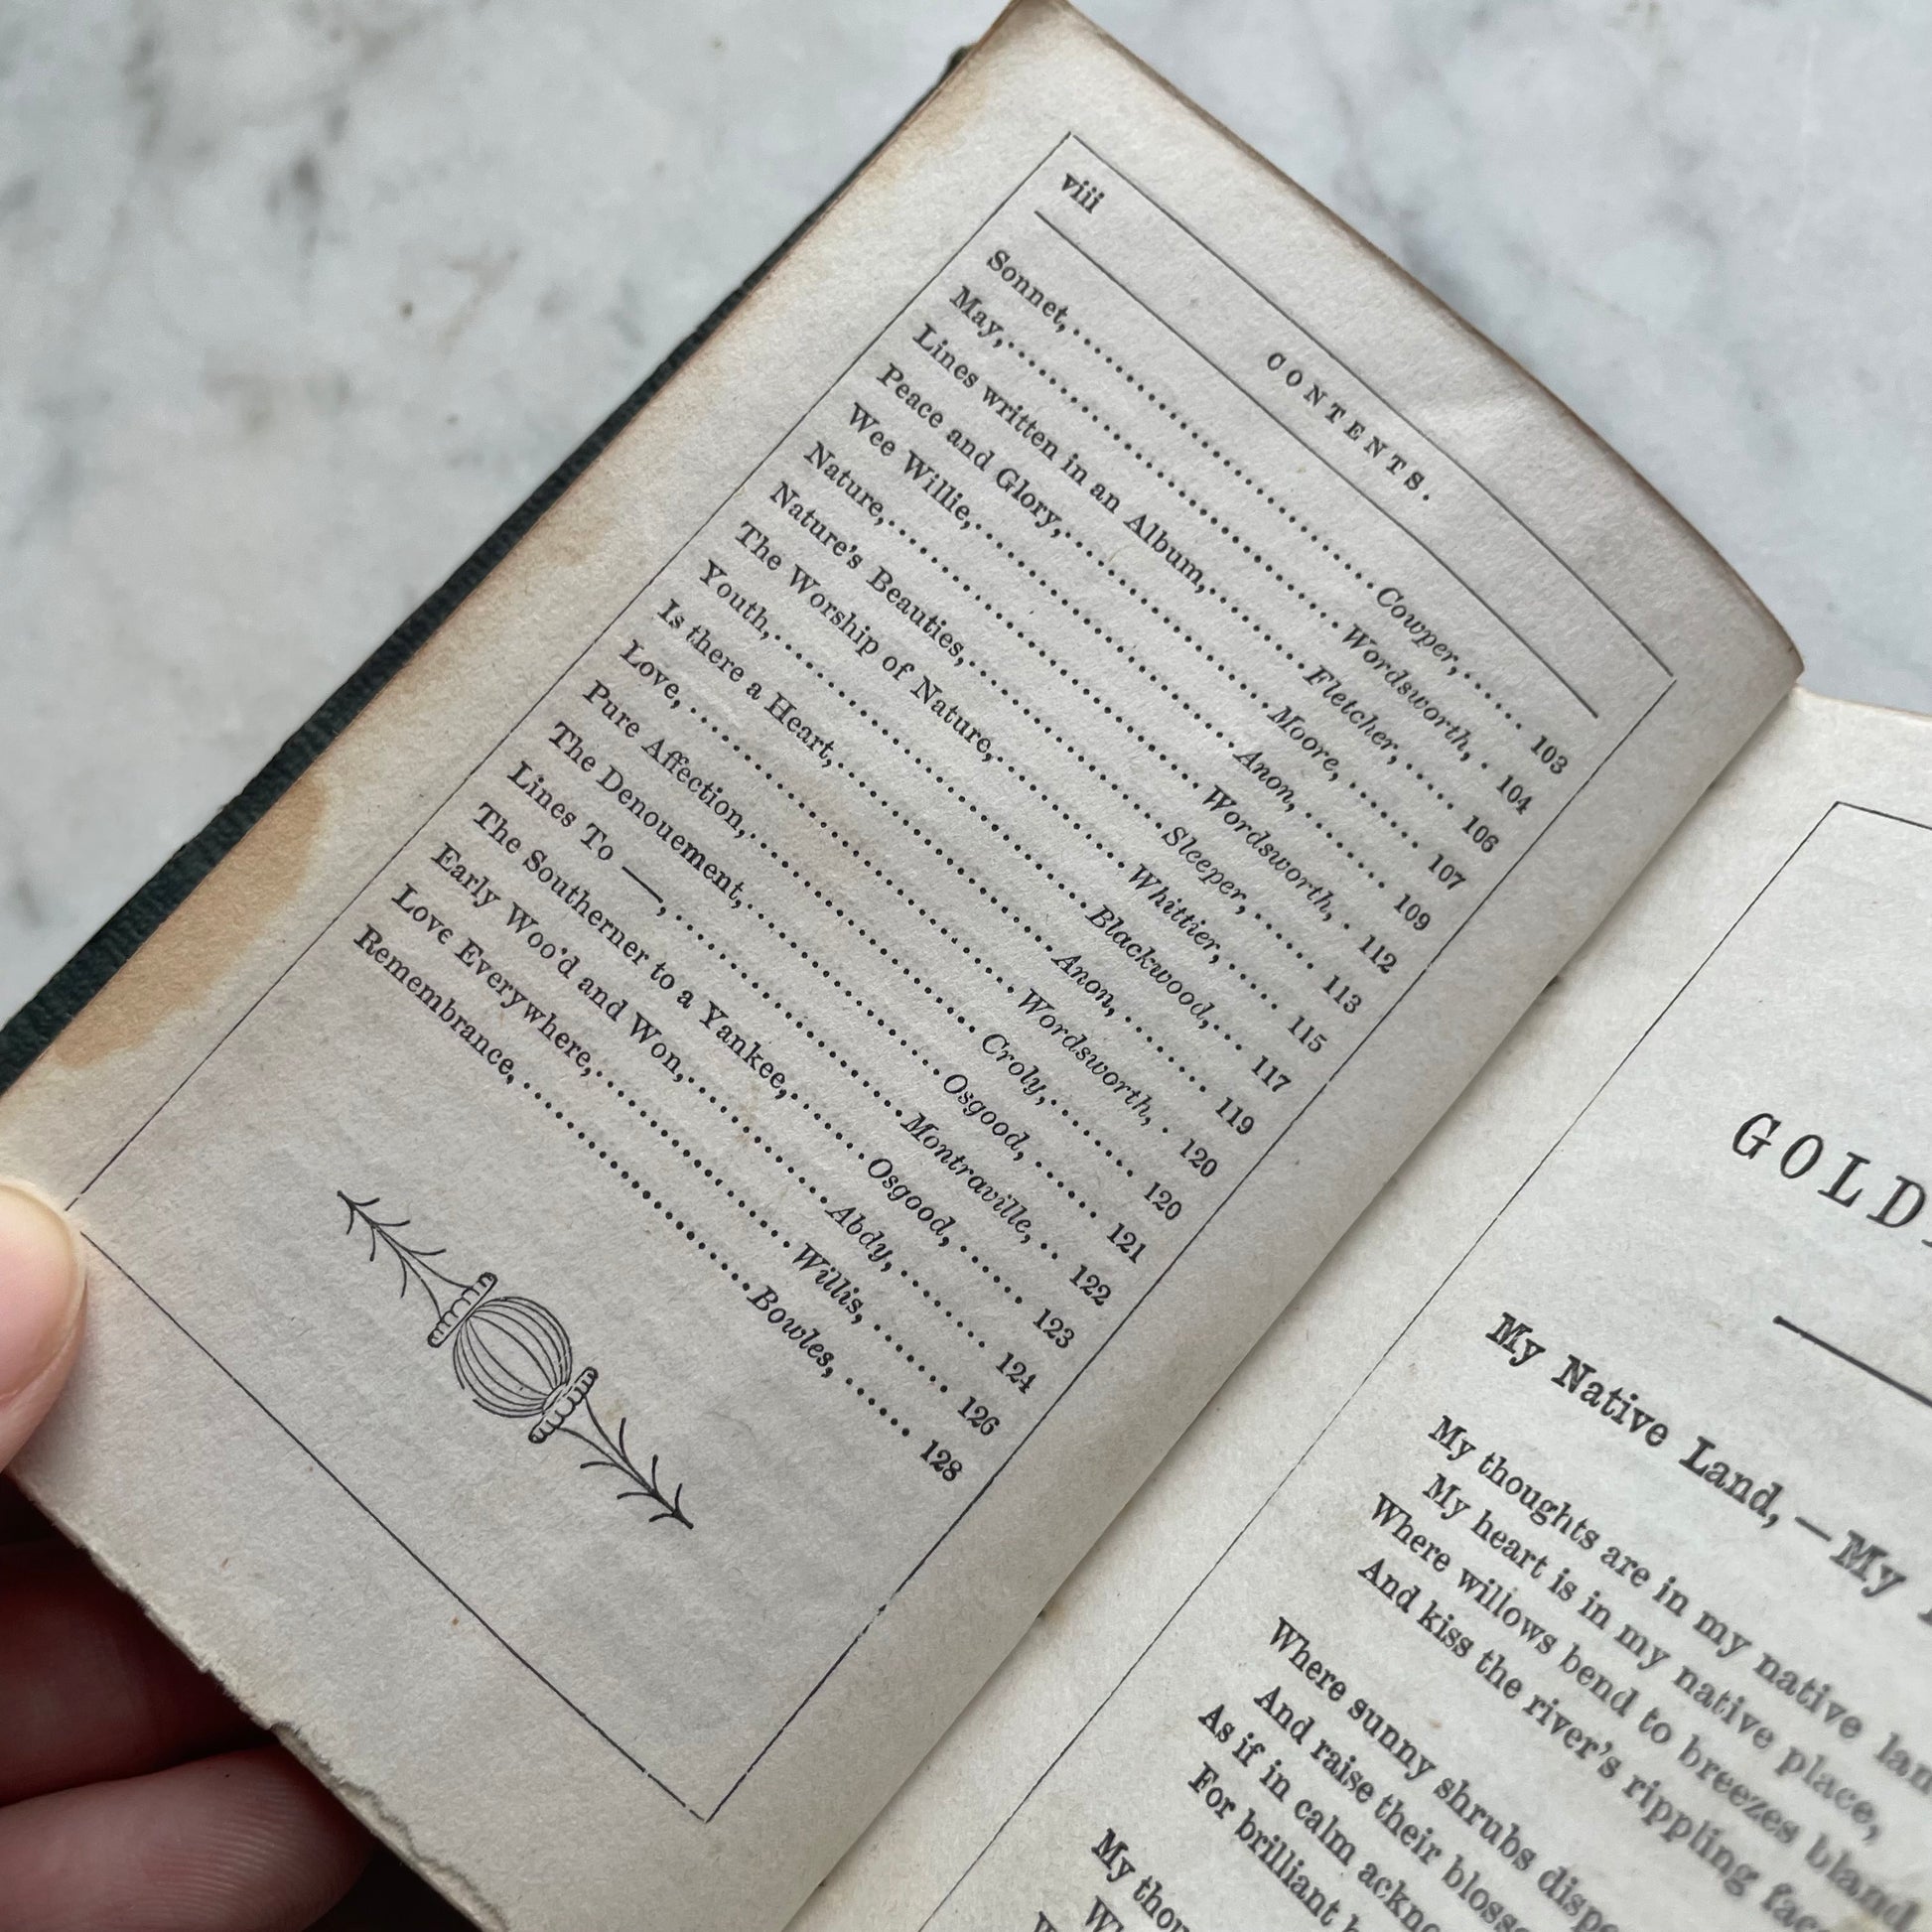 viii
CONTENTS.
Sonnet,........................Cowper,..... 103
May,........................Wordsworth,. 104
Lines written in an Album,........Fletcher,..... 106
Peace and Glory,..................Moore,....... 107
Wee Willie,........................Anon,........ 109
Nature,........................Wordsworth,. 112
Nature's Beauties,..................Sleeper,...... 113
The Worship of Nature,............Whittier,..... 115
Youth,........................Blackwood,... 117
Is there a Heart,..................Anon,........ 119
Love,........................Wordsworth,. 120
Pure Affection,..................Croly,....... 120
The Denouement,..................Osgood,...... 121
Lines To —,..................Montraville,.. 122
The Southerner to a Yankee,......Osgood,...... 123
Early Woo'd and Won,............Abdy,........ 124
Love Everywhere,..................Willis,....... 126
Remembrance,..................Bowles,....... 128
GOLD
My Native Land,—My
My thoughts are in my native
My heart is in my native place,
Where willows bend to breezes bland
And kiss the river's rippling
Where sunny shrubs
And raise their
As if in calm
For brilliant
My